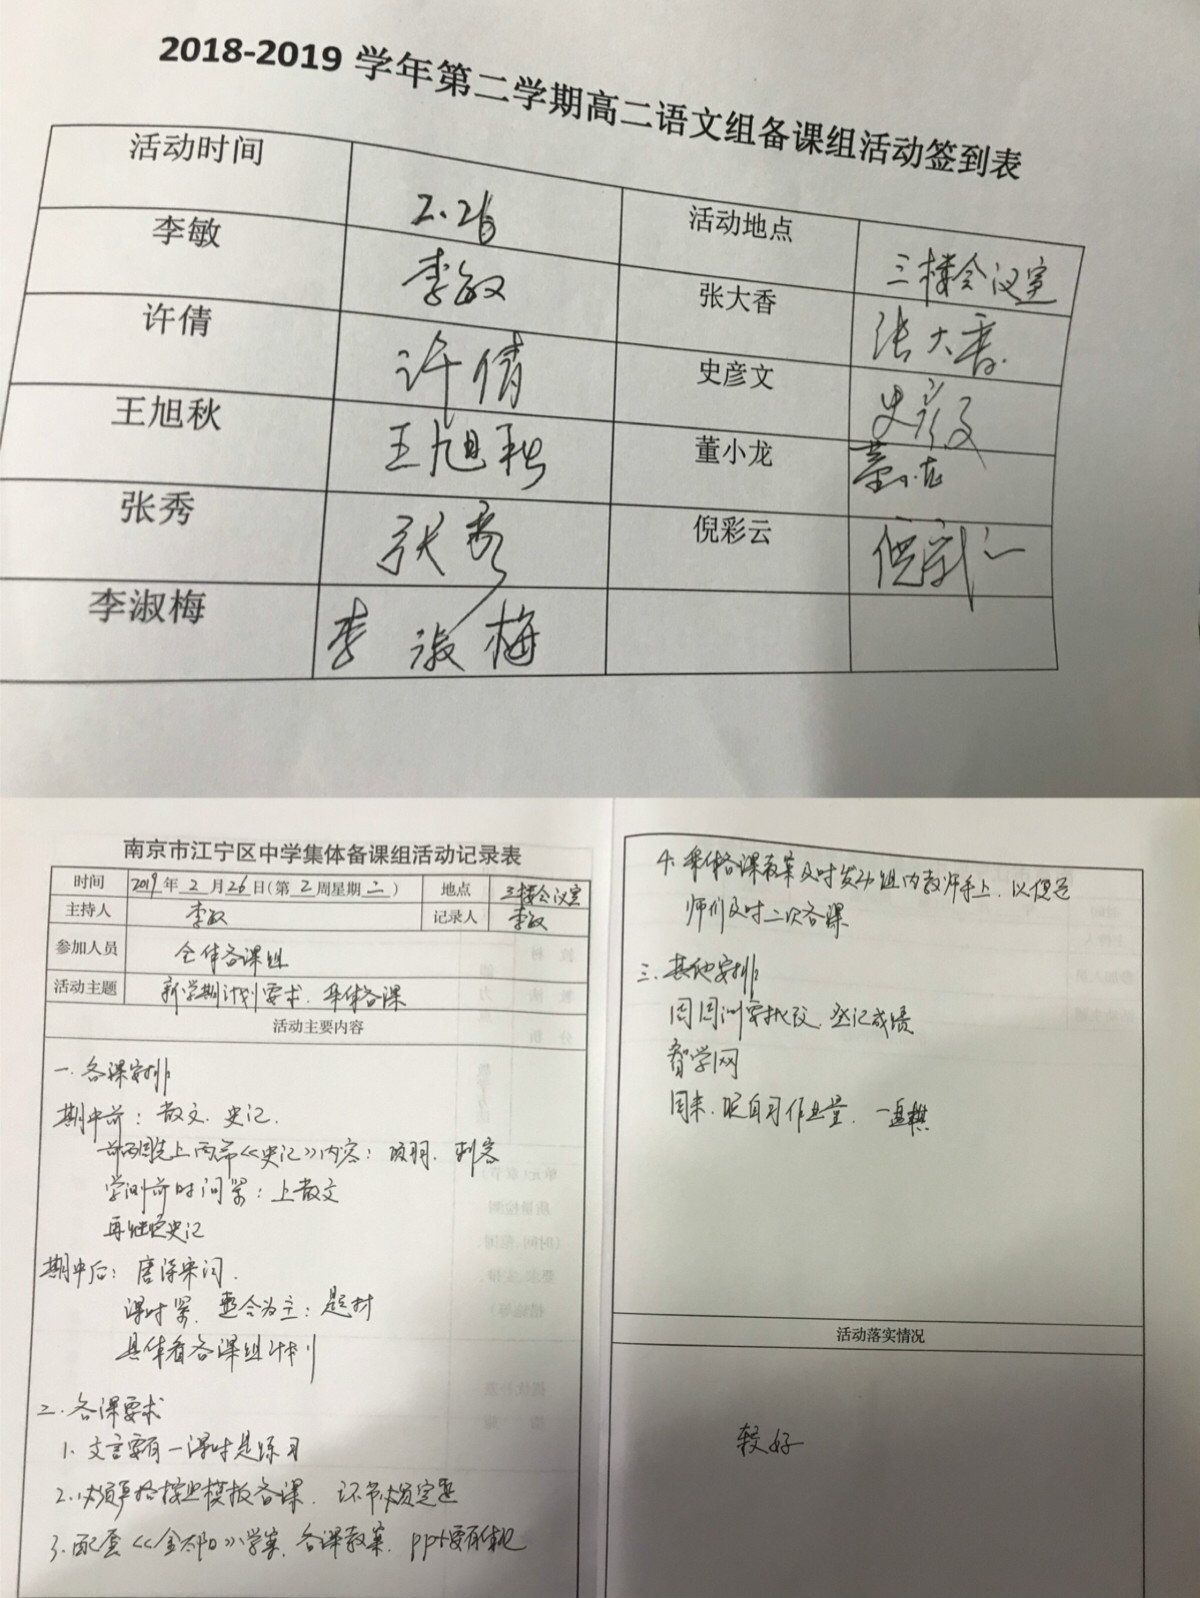 2018-2019 学年第二学期高二语文组备课组活动签到表
活动时间 2.26 活动地点 三楼会议室
李敏 李敏 张大香 张大香
许倩 许倩 史彦文 史彦文
王旭秋 王旭秋 董小龙 董小龙
张秀 张秀 倪彩云 倪彩云
李淑梅 李淑梅
南京市江宁区中学集体备课组活动记录表
时间 2019年2月26日(第2周星期二) 地点 三楼会议室
主持人 李敏 记录人 李敏
参加人员 全体备课组
活动主题 新学期计划要求、集体备课
活动主要内容
一、备课安排
期中前：散文、史记、
前两周先上两篇《史记》内容：项羽、刺客
学测前时间紧：上散文
再继续史记
期中后：唐诗宋词、
课时紧、整合为主：题材
具体看备课组计划
二、备课要求
1、文言要有一课时是练习
2、必须严格按照模板备课、环节必须完整
3、配套《金太阳》学案、备课教案、ppt要有体现
4、集体备课教案及时发到组内教师手上、以便老
师们及时二次备课
三、其他安排
周周测要批改、登记成绩
智学网
周末、晚自习作业量、一张
活动落实情况
较好